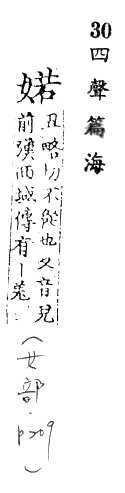 30四聲篇海
婼丑略切不從也又音兒
前漢西域傳有丨羌
(女部·p209)